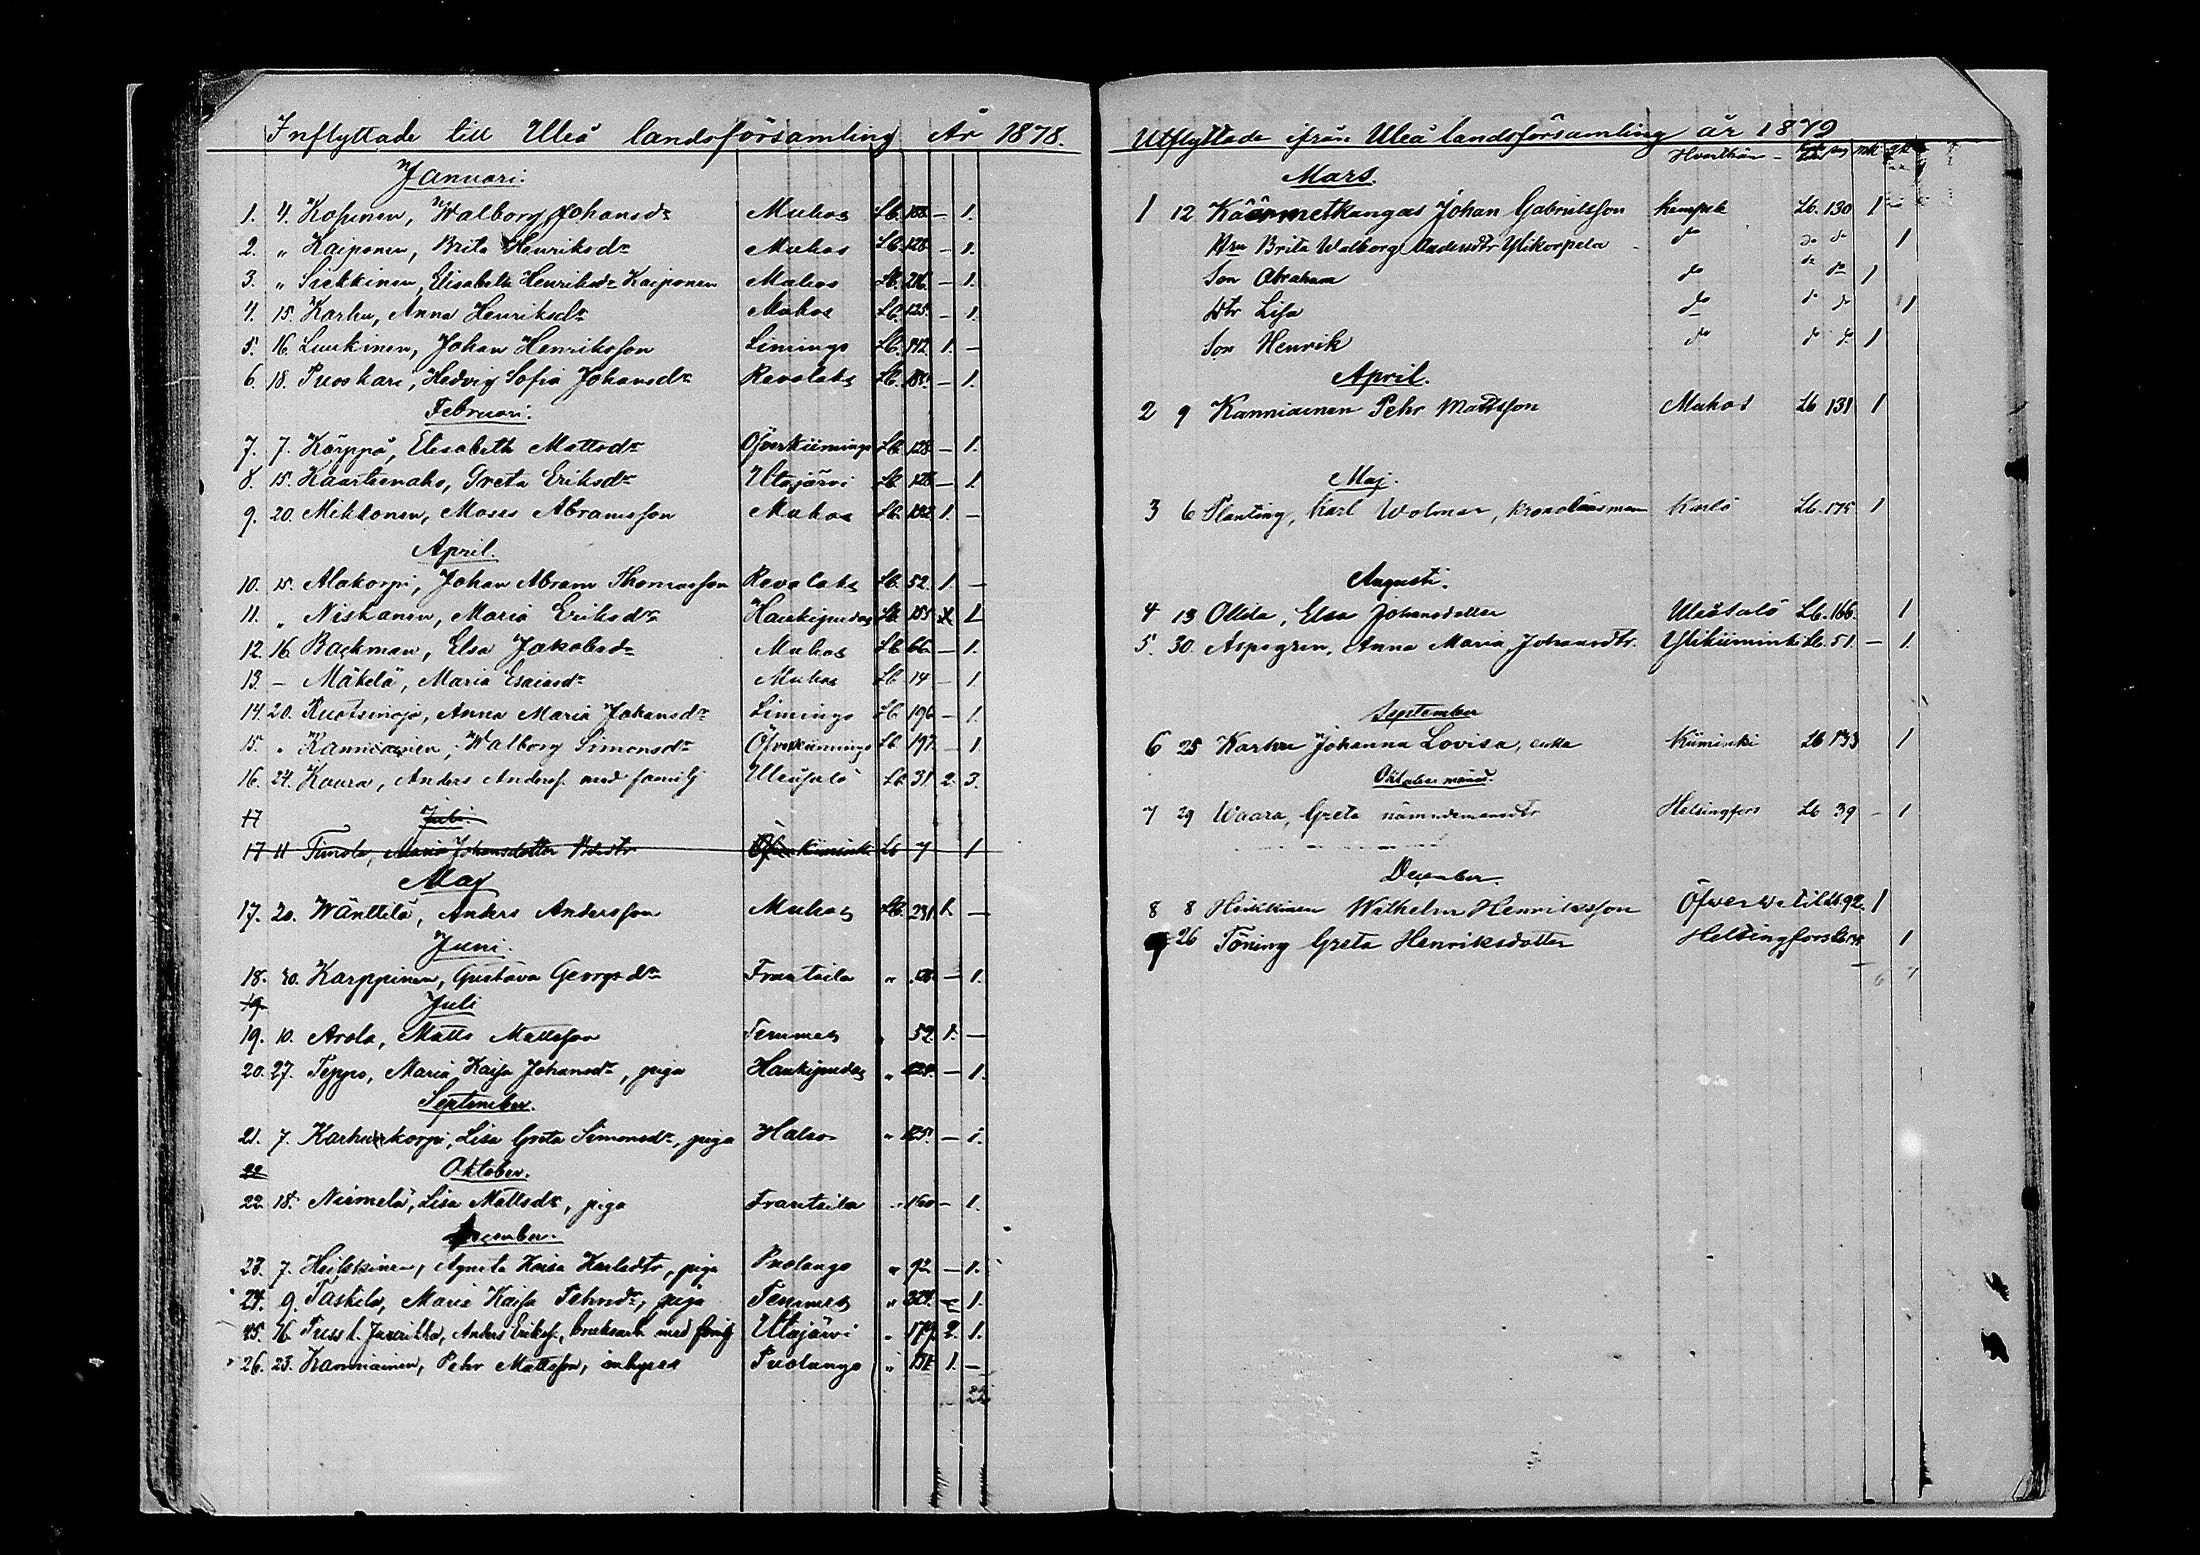 Inflyttade till Uleå landsförsamling År 1878.
Januari.
1. 4. Kopsinen, Walborg Johansdr Muhos Lb. 133 – 1.
2. " Kaiponen, Brita Henriksdr Muhos Lb. 128 – 1.
3. " Siekkinen, Elisabeth Henriksdr Kaiponen Muhos Lb. 216. – 1.
4. 15. Karhu, Anna Henriksdr Muhos Lb. 125. – 1.
5. 16. Luukinen, Johan Henriksson Limingo Lb. 142. 1. –
6. 18. Puoskari, Hedvig Sofia Johansdr Revolaks Lb. – 1.
Februari.
7. 7. Körppö, Elisabeth Mattsdr Öfverkiiminge Lb. 128 – 1.
8. 15. Kaarteenaho, Greta Eriksdr Utajärvi Lb. 128 – 1.
9. 20. Mikkonen, Moses Abramsson Muhos Lb. 132 1. –
April.
10. 15. Alakorpi, Johan Abram Thomasson Revolaks Lb. 52. 1. –
11. " Niskanen, Maria Eriksdr Haukipudas Lb. 155 1
12. 16. Backman, Elsa Jakobsdr Muhos Lb. 66. – 1.
13. – Mäkelä, Maria Esaiasdr Muhos Lb. 14 – 1
14. 20. Ruotsinoja, Anna Maria Johansdr Limingo Lb. 196 – 1.
15. " Kanniainen, Walborg Simonsdr Öfverkiiminge Lb. 197. – 1
16. 24. Kaura, Anders Andersf. med familj Uleåsalo Lb. 31. 2. 3.
17 Juli.
17 11 Timola, Maria Johansdotter Öfverkiiminki Lb 7 1
Maj
17. 20. Wänttilä, Anders Andersson Muhos Lb. 231 1. –
Juni.
18. 30. Karppinen, Gustava Georgsdr Frantsila " – 1.
19. Juli
19. 10. Arola, Matts Mattsson Temmes " 52. 1. –
20. 27. Teppo, Maria Kaisa Johansdr, piga Haukipudas " – 1.
September.
21. 7. Karhukorpi, Lisa Greta Simonsdr, piga Halso " 125. – 1.
22 Oktober.
22. 18. Niemelä, Lisa Mattsdr, piga Frantsila " 160 – 1.
December.
23. 7. Heikkinen, Agneta Kaisa Karlsdtr, piga Puolango " 92 – 1.
24. 9. Taskila, Maria Kaisa Pehrsdr, piga Temmes " 324. – 1.
25. 16. Anders Eriksf., med familj Utajärvi " 179. 2. 1.
26. 23. Kanniainen, Pehr Mattsson, inhyses Puolango " 131. 1. –
Utflyttade ifrån Uleå landsförsamling år 1879
Hvarthän
Mars.
1 12 Käärmetkangas Johan Gabrielsson Kempele Lb. 130 1
Hru Brita Walborg Andersdtr Ylikorpela do do do 1
Son Abraham do do do 1
Dtr Lisa do do do 1
Son Henrik do do do 1
April.
2 9 Kanniainen Pehr Mattsson Muhos Lb 131 1
Maj.
3 6 Planting, Karl Wolmar, kronolänsman Karlö Lb. 175 1
Augusti.
4 13 Ollila, Elsa Johansdotter Uleåsalo Lb. 166. 1
5. 30. Aspegren, Anna Maria Johansdtr. Ylikiiminki Lb. 51. – 1.
September
6 25 Karhu Johanna Lovisa, enka Kiiminki Lb 133 1
Oktober månad.
7 29 Waara, Greta nämndemansdtr Helsingfors Lb 39 – 1
December.
8 8 Heikkinen Wilhelm Henriksson Öfvervetil Lb. 92. 1
9 26 Töning Greta Henriksdotter Helsingfors 1
6 7